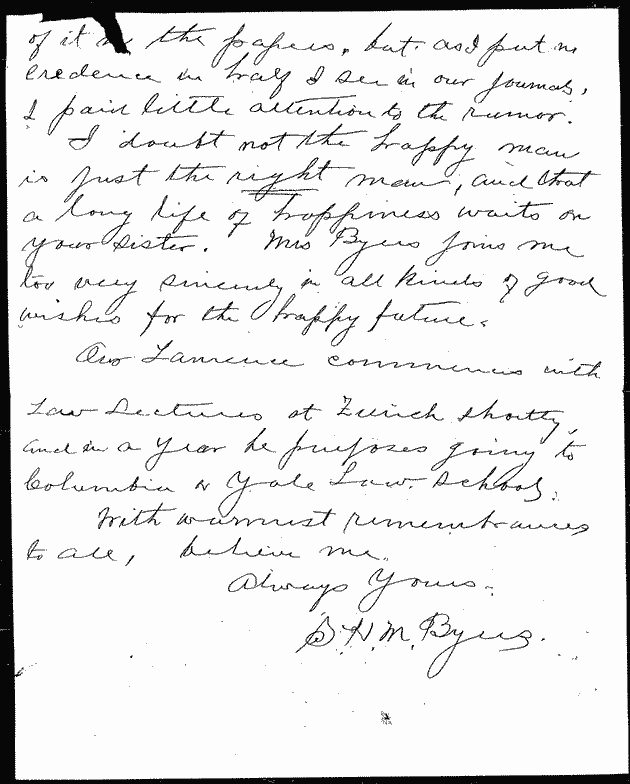 of it in the papers, but as I put no
credence in half I see in our journals,
I paid little attention to the rumor.
I doubt not the happy man
is just the right man, and that
a long life of happiness waits on
your sister. Mrs Byers joins me
too very sincerely in all kinds of good
wishes for the happy future.
Our Lawrence commences with
Law Lectures at Zurich shortly,
and in a year he purposes going to
Columbia or Yale Law Schools.
With warmest remembrances
to all, believe me.
Always Yours.
S. H. M. Byers.